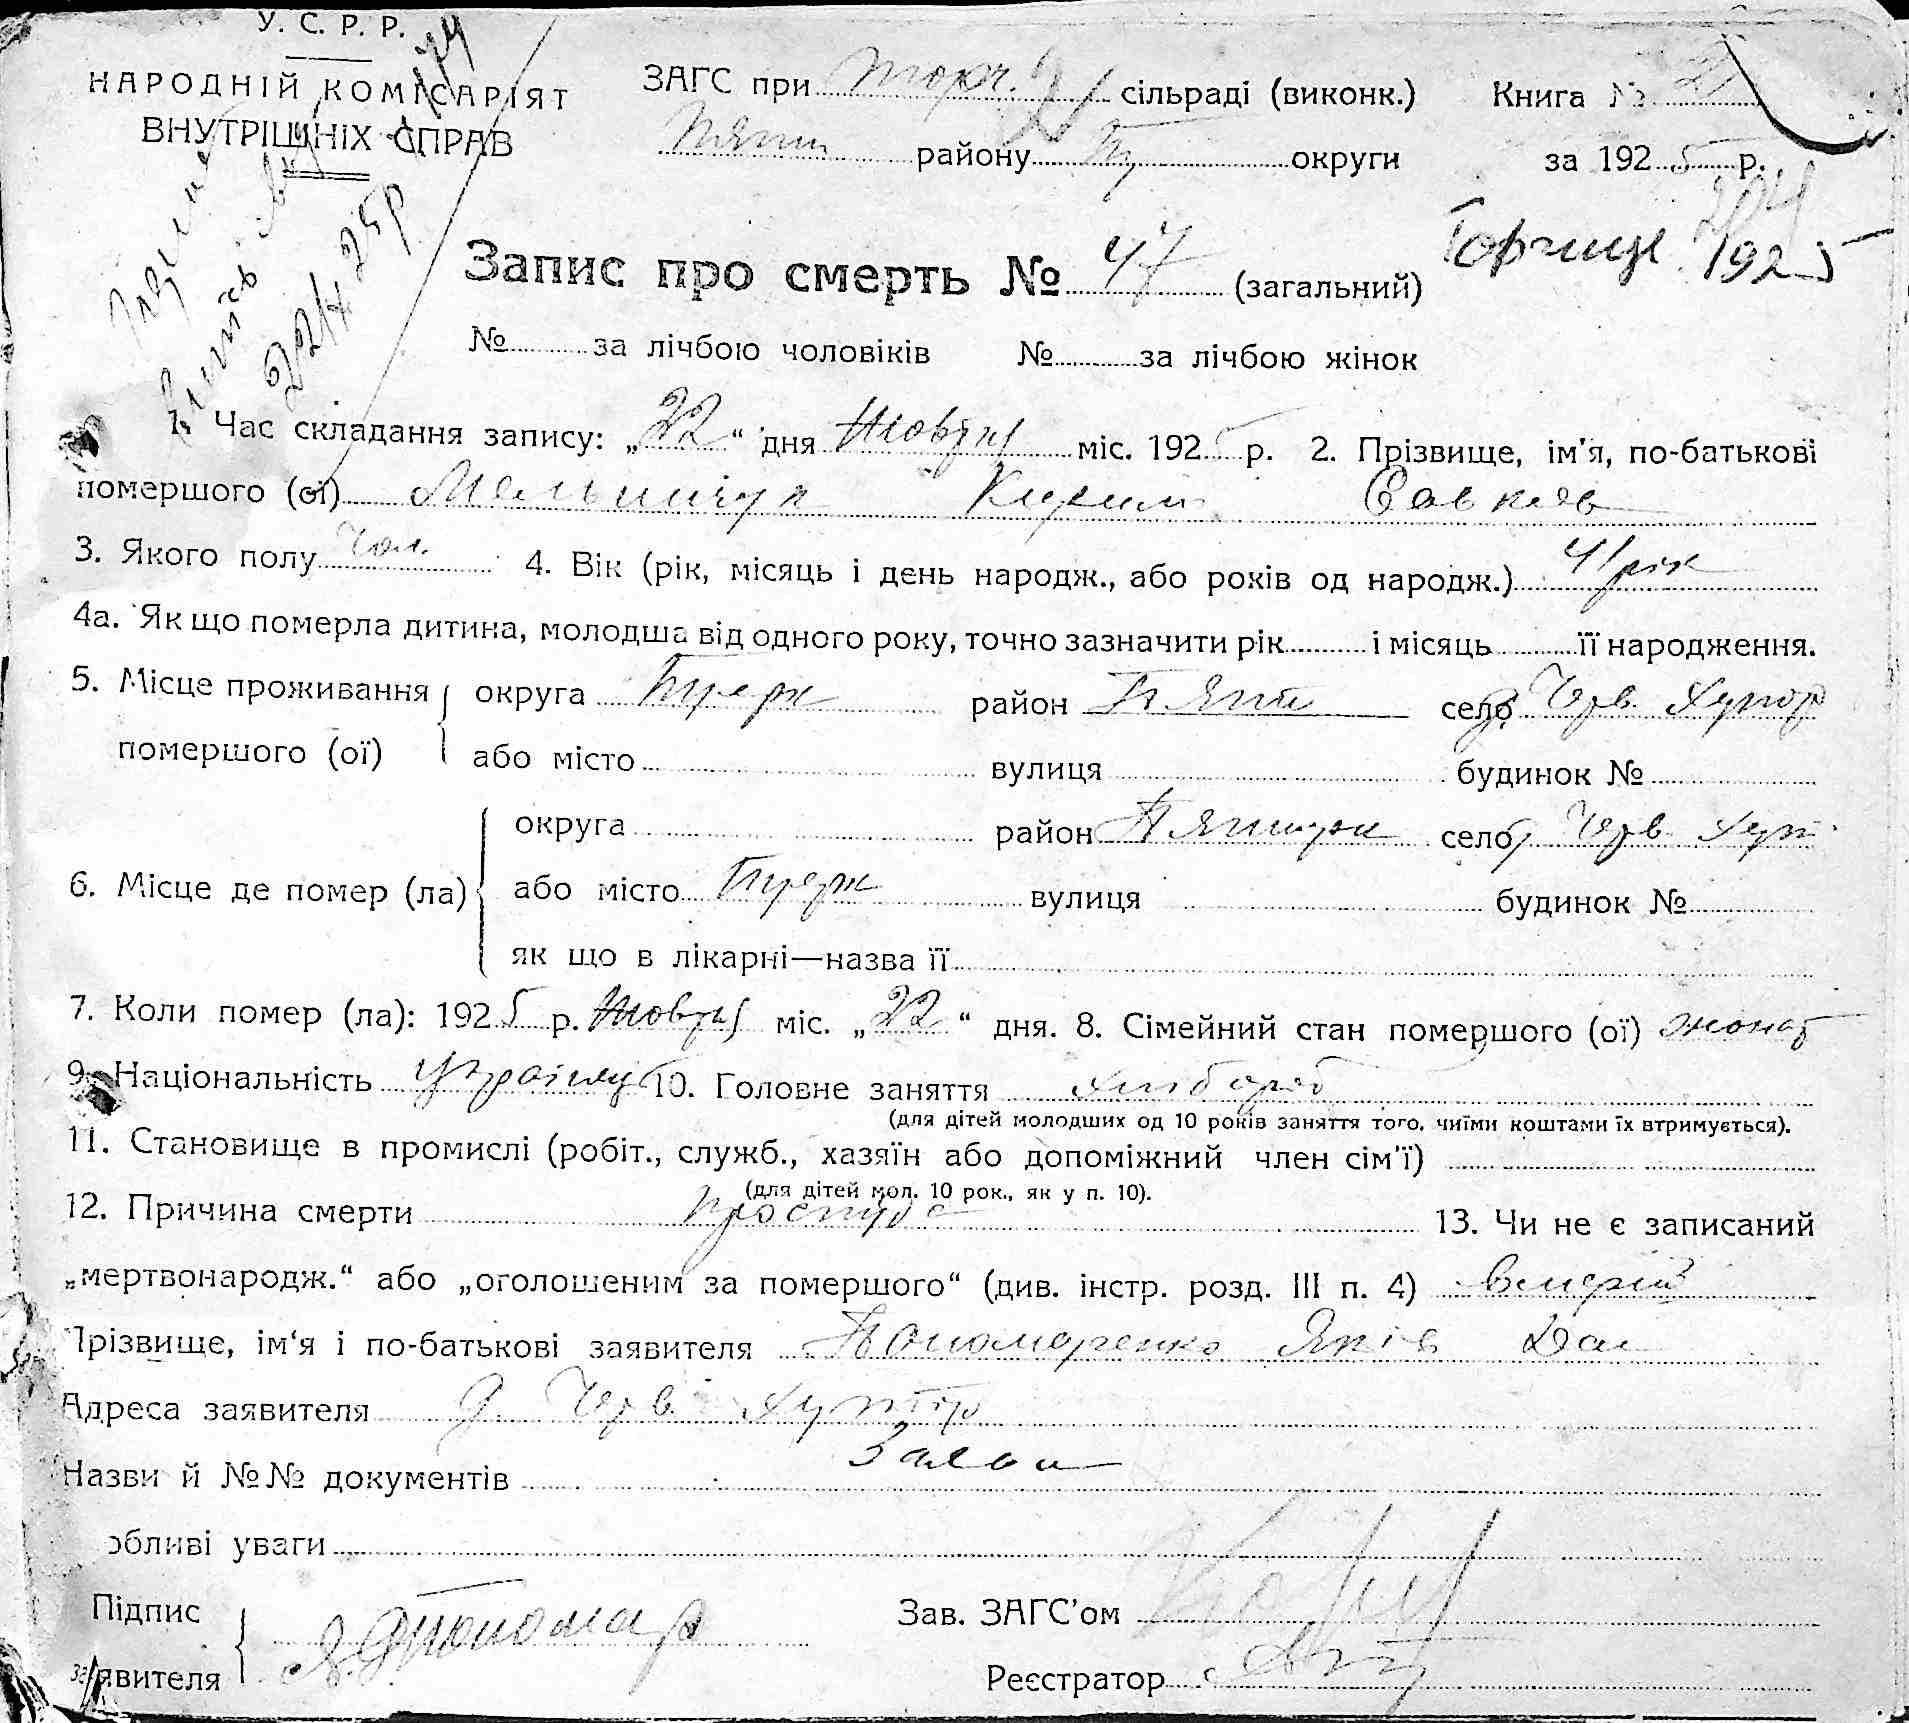 У. С. Р. Р.
НАРОДНІЙ КОМІСАРІЯТ
ВНУТРІШНІХ СПРАВ
ЗАГС при Торч. сільраді (виконк.)
Пятн району округи
Книга №
за 1925 р.
22/X 25р
Торчиця 1925
Запис про смерть № 47 (загальний)
№ за лічбою чоловіків № за лічбою жінок
1. Час складання запису: „22“ дня Жовтня міс. 1925 р. 2. Прізвище, ім'я, по-батькові
помершого (ої) Мельничук Кирило Савков
3. Якого полу чол. 4. Вік (рік, місяць і день народж., або років од народж.) 41 рік
4а. Як що померла дитина, молодша від одного року, точно зазначити рік і місяць її народження.
5. Місце проживання помершого (ої) округа район Пятн село Черв. Хутор
або місто вулиця будинок №
6. Місце де помер (ла) округа район село Черв. Хут
або місто вулиця будинок №
як що в лікарні—назва її
7. Коли помер (ла): 1925 р. Жовтня міс. „22“ дня. 8. Сімейний стан помершого (ої) жонат
9. Національність 10. Головне заняття хлібороб
(для дітей молодших од 10 років заняття того, чиїми коштами їх втримується).
11. Становище в промислі (робіт., служб., хазяїн або допоміжний член сім'ї)
(для дітей мол. 10 рок., як у п. 10).
12. Причина смерти простуда 13. Чи не є записаний
„мертвонародж.“ або „оголошеним за помершого“ (див. інстр. розд. III п. 4) вмерш
Прізвище, ім'я і по-батькові заявителя Пономаренко Яків Дан
Адреса заявителя Черв. хутор
Назви й №№ документів Заява
обливі уваги
Підпис заявителя Я. Пономар
Зав. ЗАГС'ом
Реєстратор